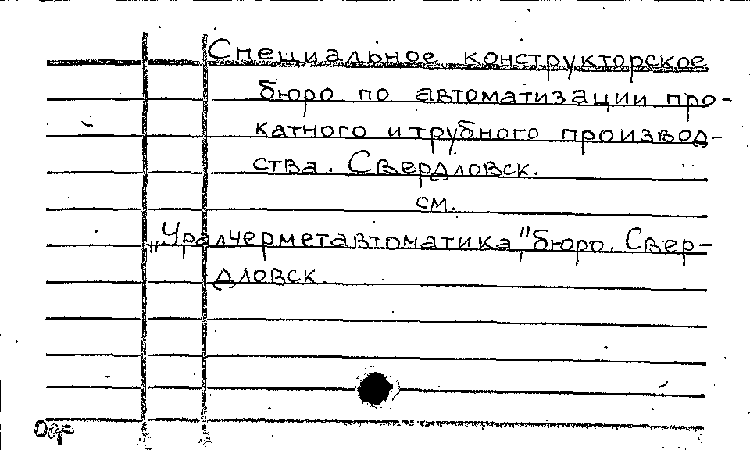 Специальное конструкторское
бюро по автоматизации про-
катного и трубного производ-
ства. Свердловск.
см.
„Уралчерметавтоматика," бюро. Свер-
дловск.